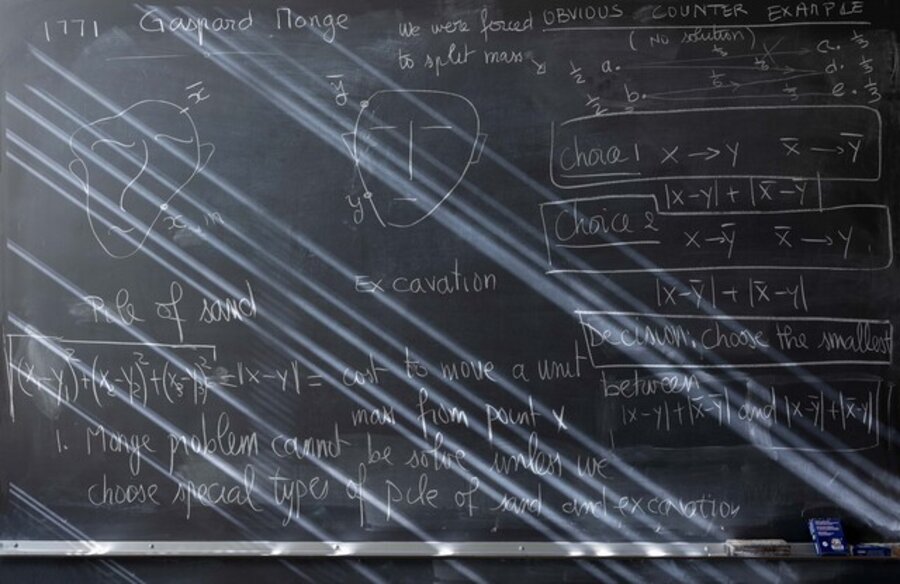 1771 Gaspard Monge
We were forced
to split mass
OBVIOUS COUNTER EXAMPLE
(NO solution)
1/2 a.
1/2 b.
c. 1/3
d. 1/3
e. 1/3
1/3
1/3
x̄
ȳ
x, m
y
Pile of sand
Excavation
Choice 1 x → y x̄ → ȳ
|x-y| + |x̄-ȳ|
Choice 2 x → ȳ x̄ → y
|x-ȳ| + |x̄-y|
Decision: choose the smallest
between
|x-y|+|x̄-ȳ| and |x-ȳ|+|x̄-y|
√(x₁-y₁)²+(x₂-y₂)²+(x₃-y₃)² = |x-y| = cost to move a unit
mass from point x
1. Monge problem cannot be solve unless we
choose special types of pile of sand and excavation